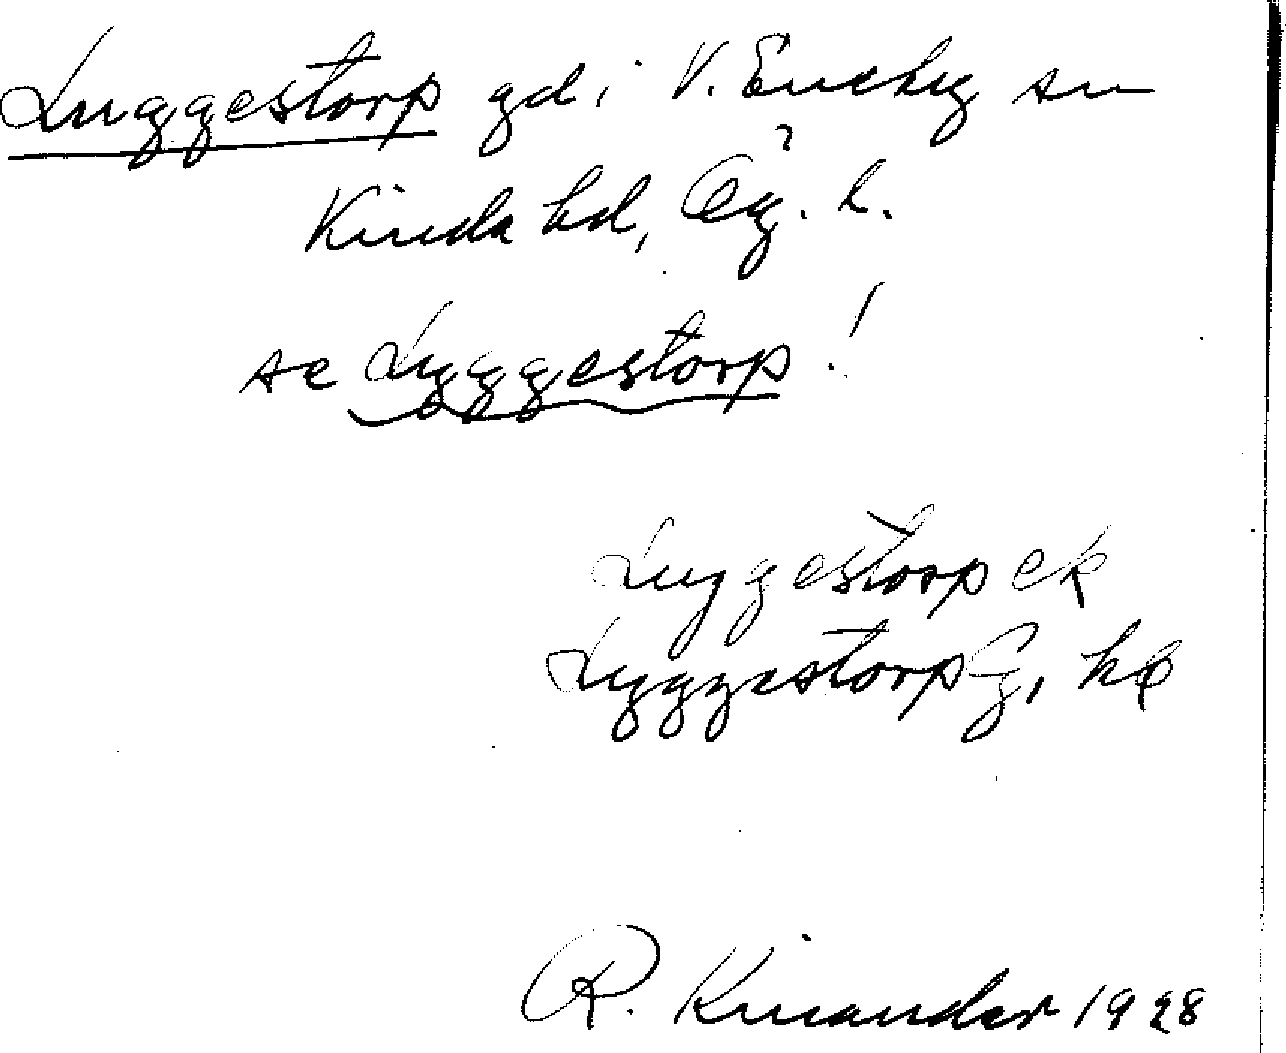 Luggestorp gd i V. Eneby sn
Kinda hd, Ög. l.
se Lyggestorp!
Luggestorp ek
Lyggestorp G, hp
R. Kinander 1928